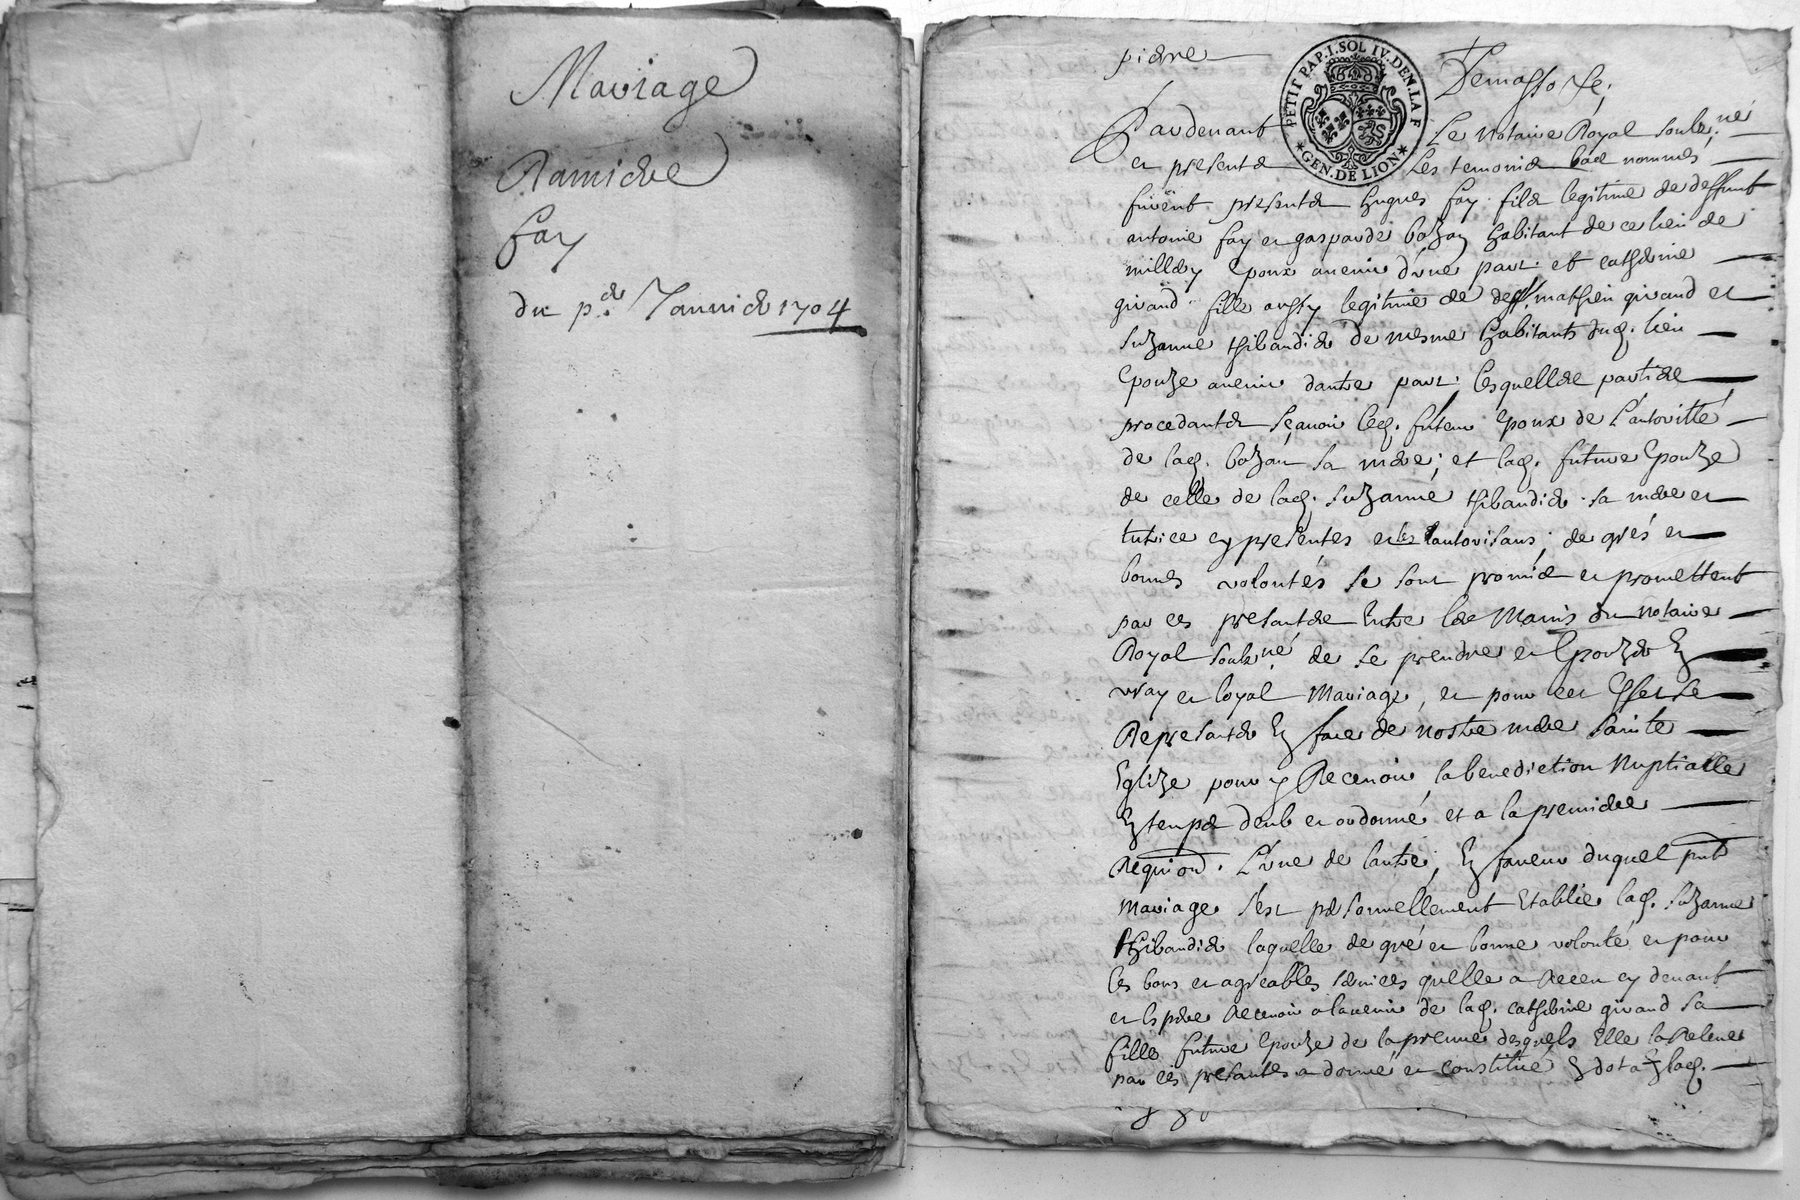 Mariage
Ramiere
fay
du p.er Janvier 1704
pierre
PETIT PAP. I. SOL IV. DEN. LA F
GEN. DE LION
Demasso
Pardevant Le Notaire Royal soubz.né
et presents Les temoins bas nommés
furent presents hugues fay fils legitime de deffunt
antoine fay et gasparde bozon habitant de ce lieu de
millery Epoux avenir d'une part et catherine
giraud fille aussy legitime de deff.t mathieu giraud et
suzanne thibaudier de mesme habitants dud. lieu
Epouze avenir dautre part, lesquelles parties
procedantes sçavoir led. futeur Epoux de L'autorité
de lad. bozon sa mere; et lad. future Epouze
de celle de lad. suzanne thibaudier sa mere et
tutrice cy presentes et les autorisans, de grés et
bonnes volontés se sont promis et promettent
par ces presantes Entre les Mains du notaire
Royal soubz.né de se prendre et Epouzer En
vray et loyal Mariage, et pour cet Effet se
Represanter En face de nostre mere sainte
Eglize pour y Recevoir la benediction Nuptialle
En temps deub et ordonné et a la premiere
Requion. L'une de lautre, En faveur duquel pnt
Mariage s'est personnellement Etablie lad. suzanne
thibaudier laquelle de gré et bonne volonté et pour
les bons et agreables services quelle a Receu cy devant
et Espere Recevoir a lavenir de lad. catherine giraud sa
fille future Epouze de la preuve desquels Elle la Releve
par ces presantes a donné et constitué En dot a lad.